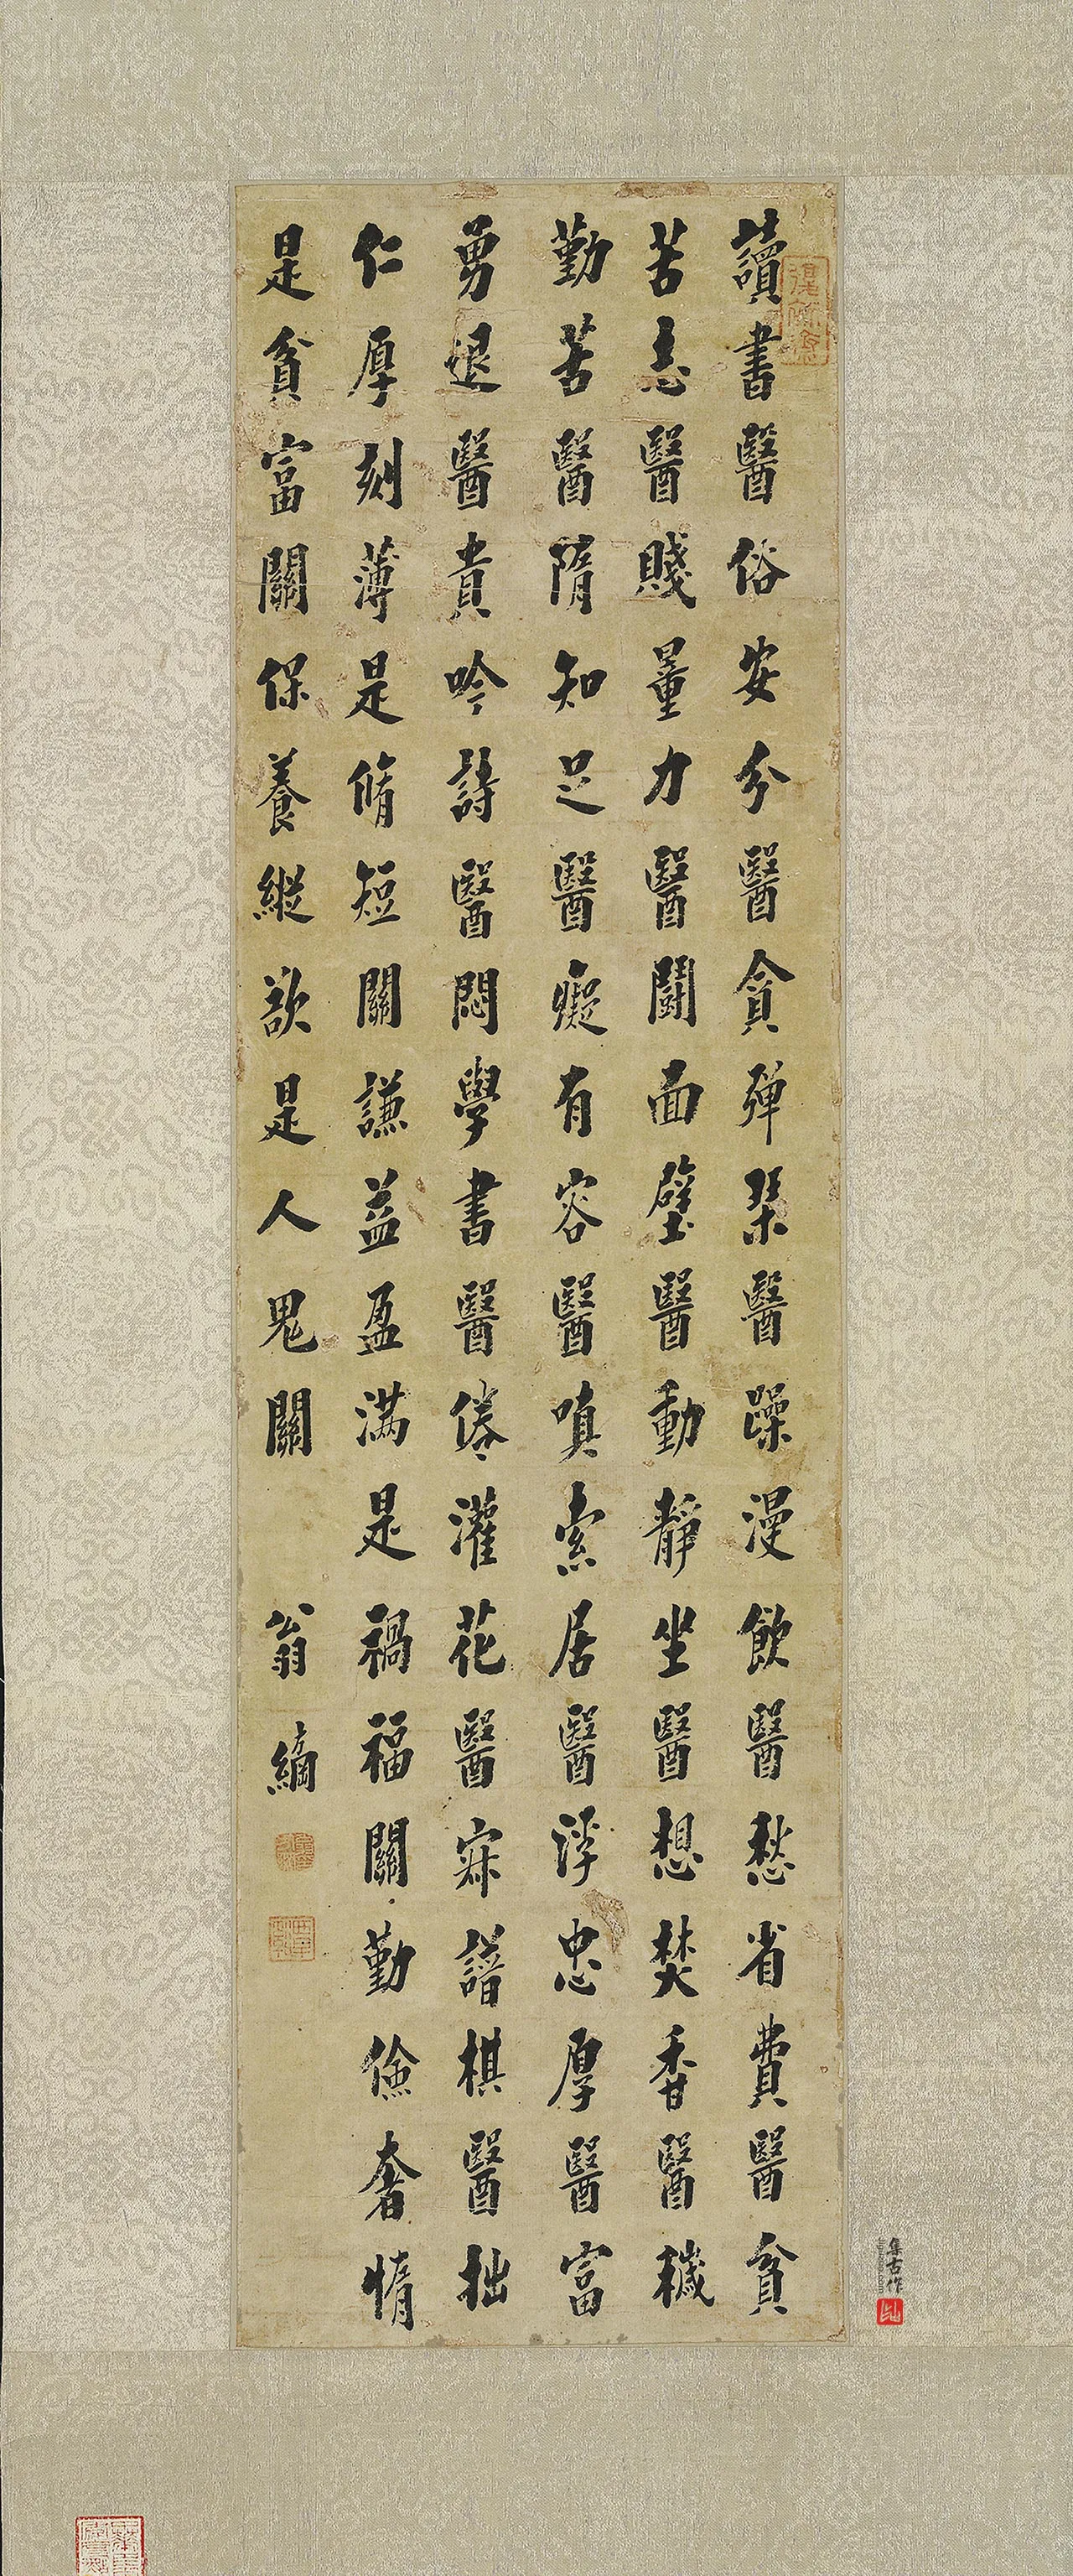 讀書醫俗安分醫貪彈琹醫躁漫飲醫愁省費醫貧
苦志醫賤量力醫鬪面壁醫動靜坐醫想焚香醫穢
勤苦醫隋知足醫癡有容醫嗔索居醫浮忠厚醫富
勇退醫貴吟詩醫悶學書醫倦灌花醫寐譜棋醫拙
仁厚刻薄是脩短關謙益盈满是禍福關勤儉奢惰
是貧富關保養縱欲是人鬼關
翁綱
集古作